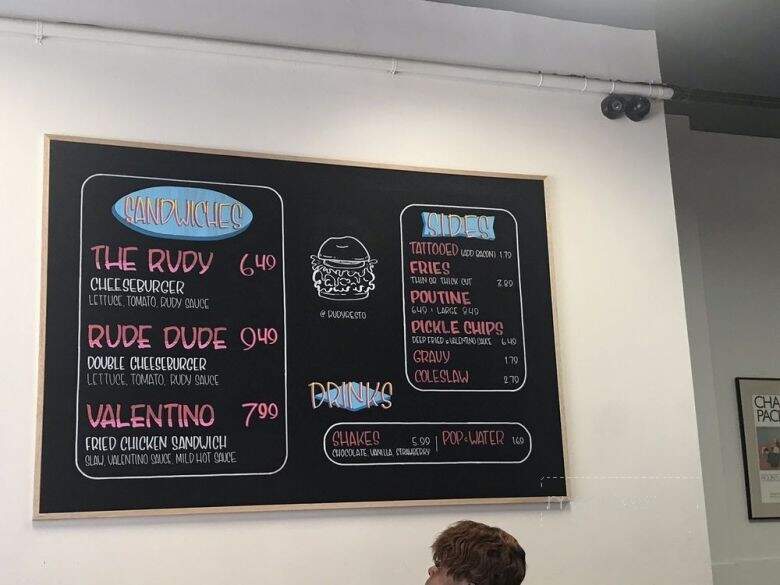 SANDWICHES
THE RUDY 6.49
CHEESEBURGER
LETTUCE, TOMATO, RUDY SAUCE
RUDE DUDE 9.49
DOUBLE CHEESEBURGER
LETTUCE, TOMATO, RUDY SAUCE
VALENTINO 7.99
FRIED CHICKEN SANDWICH
SLAW, VALENTINO SAUCE, MILD HOT SAUCE
@ RUDYRESTO
SIDES
TATTOOED (ADD BACON) 1.79
FRIES
THIN OR THICK CUT
POUTINE
6.49 • LARGE 8.49
PICKLE CHIPS
DEEP FRIED & VALENTINO SAUCE 6.49
GRAVY 1.79
COLESLAW 2.79
DRINKS
SHAKES 5.99 | POP & WATER 1.69
CHOCOLATE, VANILLA, STRAWBERRY
CHA
PAC